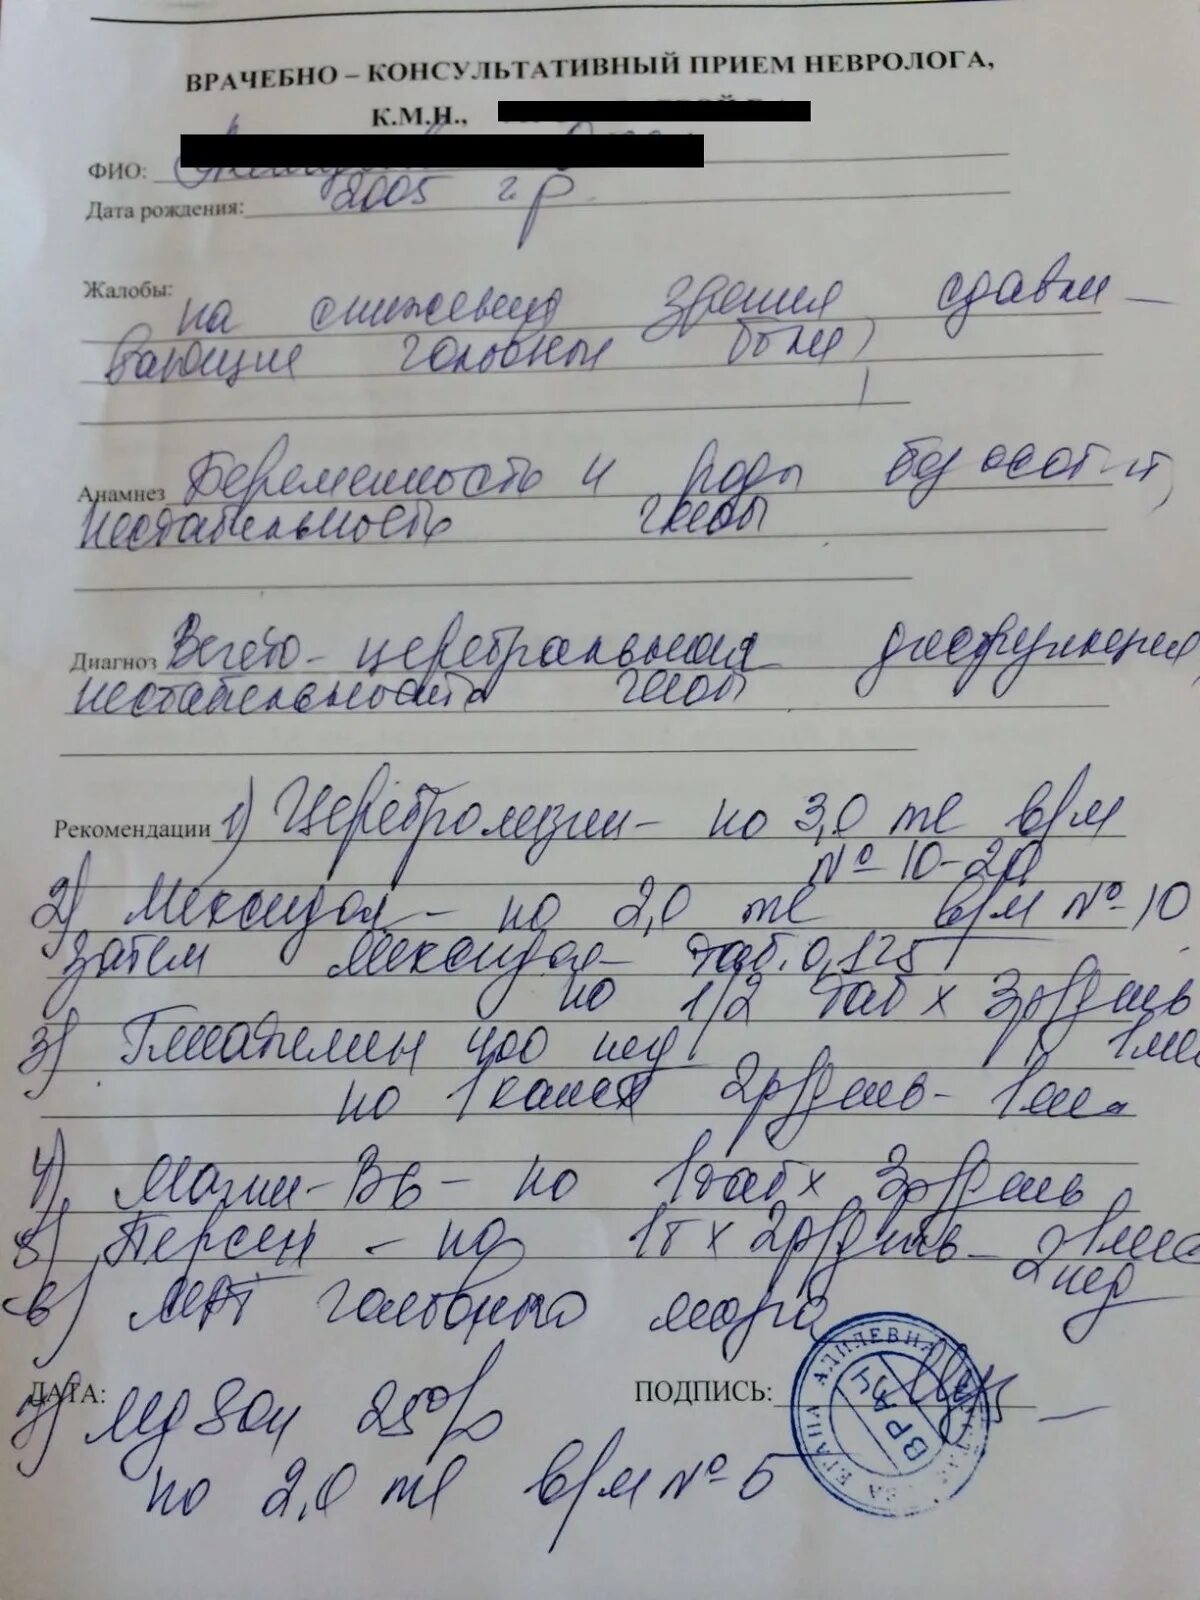 ВРАЧЕБНО – КОНСУЛЬТАТИВНЫЙ ПРИЕМ НЕВРОЛОГА,
К.М.Н.,
ФИО:
Дата рождения: 2005 г.р.
Жалобы: на снижения зрения сдавли-
вающие головные боли,
Анамнез Беременность и роды без
нестабильность
Диагноз Вегето-церебральная дисфункция,
нестабильность
Рекомендации 1) Церебролизин- по 3,0 мл в/м
№ 10-20
2) Мексидол - по 2,0 мл в/м № 10
затем Мексидол- таб. 0,125
по 1/2 таб х 3р/день
3) 400 1 мес
по 1 капс 2р/день-
4) Магни-В6 - по 1таб х 3р/день
5) Персен - по 1т х 2р/день- 1мес
2 нед
6) МРТ головного мозга
ДАТА: ПОДПИСЬ:
7) 25%
по 2,0 мл в/м № 5
АДИЛЕВНА
ВРАЧ